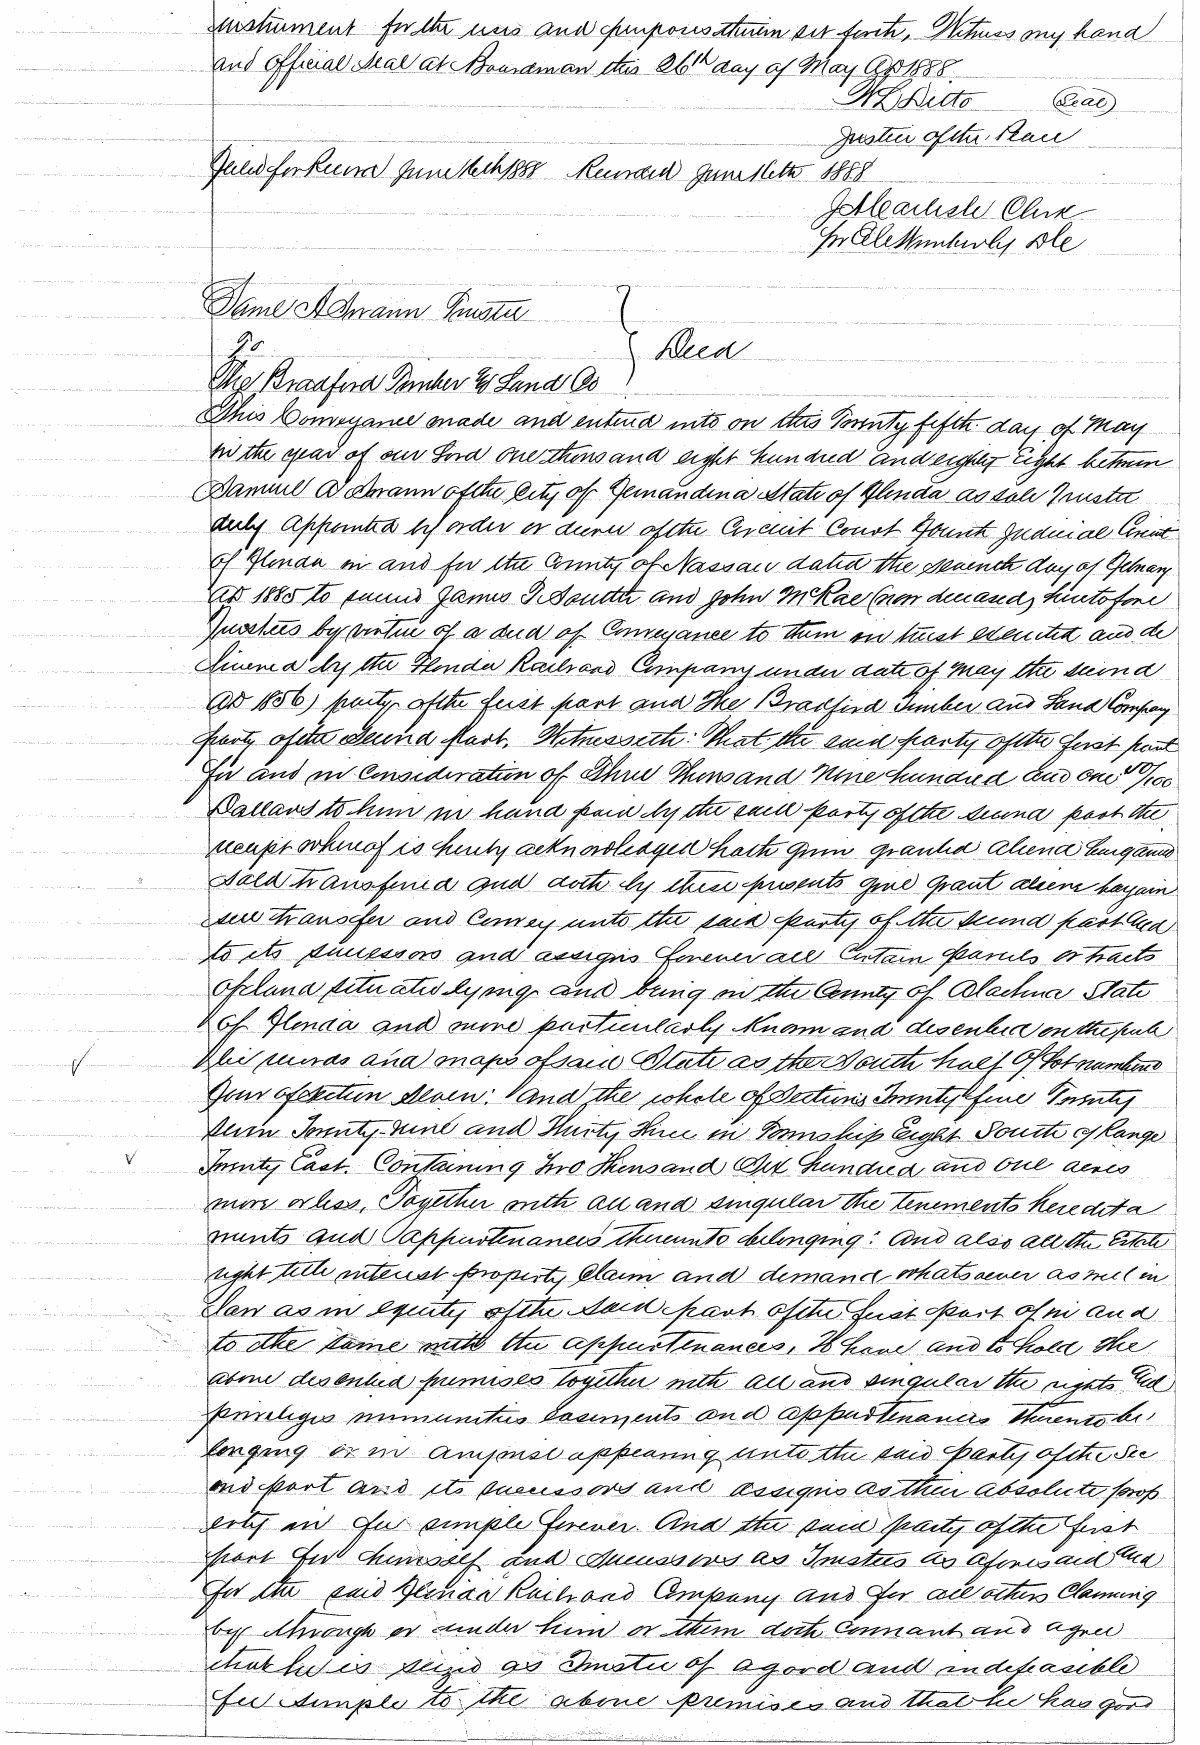 instrument for the uses and purposes therein set forth, Witness my hand
and official Seal at Boardman this 26th day of May AD 1888
Ditto (Seal)
Justice of the Peace
Filed for Record June 16th 1888 Recorded June 16th 1888
Clerk
Samel A Swann Trustee
To } Deed
The Bradford Timber & Land Co
This Conveyance made and entered into on this Twenty fifth day of May
in the year of our Lord one thousand eight hundred and eighty Eight between
Samuel A Swann of the City of Fernandina State of Florida as sole Trustee
duly Appointed by order or decree of the Circuit Court Fourth Judicial Circuit
of Florida in and for the County of Nassau dated the seventh day of February
AD 1885 to succeed James T. Soutter and John McRae (now deceased, heretofore
Trustees by virtue of a deed of Conveyance to them in trust executed and de
livered by the Florida Railroad Company under date of May the second
AD 1856) party of the first part and The Bradford Timber and Land Company
party of the Second Part. Witnesseth: That the said party of the first part
for and in Consideration of Three Thousand Nine hundred and one 50/100
Dollars to him in hand paid by the said party of the second part the
receipt whereof is hereby acknowledged hath given granted aliened bargained
sold transferred and doth by these presents give grant aliene bargain
sell transfer and Convey unto the said party of the second part and
to its successors and assigns forever all Certain Parcels or tracts
of land situated lying and being in the County of Alachua State
of Florida and more particularly Known and described on the pub
lic records and maps of said State as the South half of Lot numbered
Four of section Seven: and the whole of Sections Twenty five Twenty
Seven Twenty-Nine and Thirty Three in Township Eight South of Range
Twenty East. Containing Two Thousand Six hundred and one acres
more or less, Together with all and singular the tenements heredita
ments and appurtenances thereunto belonging: And also all the Estate
right title interest property Claim and demand whatsoever as well in
Law as in equity of the said part of the first part of in and
to the same with the appurtenances, To have and to hold the
above described premises together with all and singular the rights and
privileges immunities easements and appurtenances thereto be
longing or in anywise appearing unto the said Party of the Sec
ond part and its successors and assigns as their absolute prop
erty in fee simple forever. And the said party of the first
part for himself and Successors as Trustees as aforesaid and
for the said Florida Railroad Company and for all others Claiming
by through or under him or them doth Covenant and agree
that he is seized as Trustee of a good and indefeasible
fee simple to the above premises and that he has good